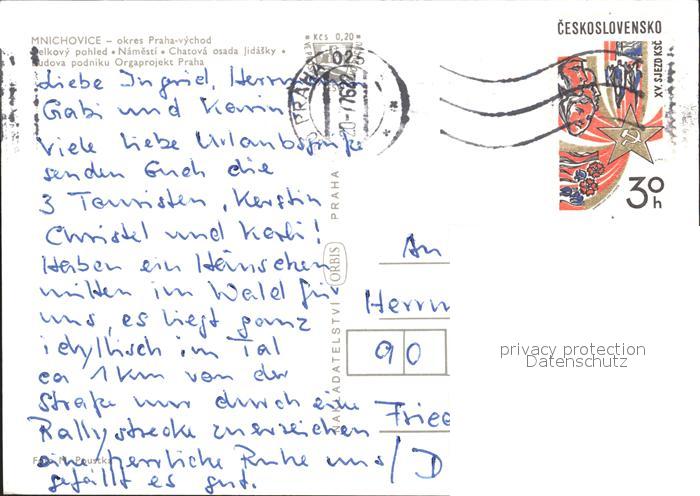 MNICHOVICE – okres Praha-východ
Celkový pohled • Náměstí • Chatová osada Jidášky •
Budova podniku Orgaprojekt Praha
Kčs 0,20
PRAHA 025
20.-7.76-22
ČESKOSLOVENSKO
XV. SJEZD KSČ
30 h
Liebe Ingrid, Hermann
Gabi und Karin
Viele liebe Urlaubsgrüße
senden Euch die
3 Touristen, Kerstin
Christel und Karli!
Haben ein Häuschen
mitten im Wald für
uns, es liegt ganz
idyllisch im Tal
ca 1 km von der
Straße nur durch eine
Rallystrecke zu erreichen
eine herrliche Ruhe uns
gefällt es gut.
NAKLADATELSTVÍ ORBIS PRAHA
An
Herrn
90
Fried
/ D
privacy protection
Datenschutz